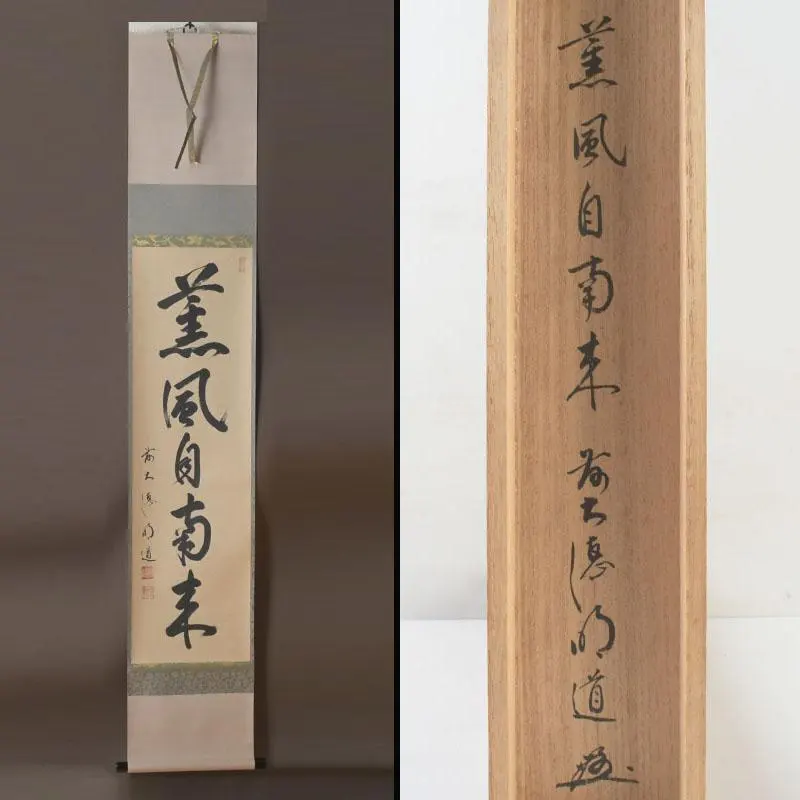 薫風自南来
前大徳明道
薫風自南来 前大徳明道